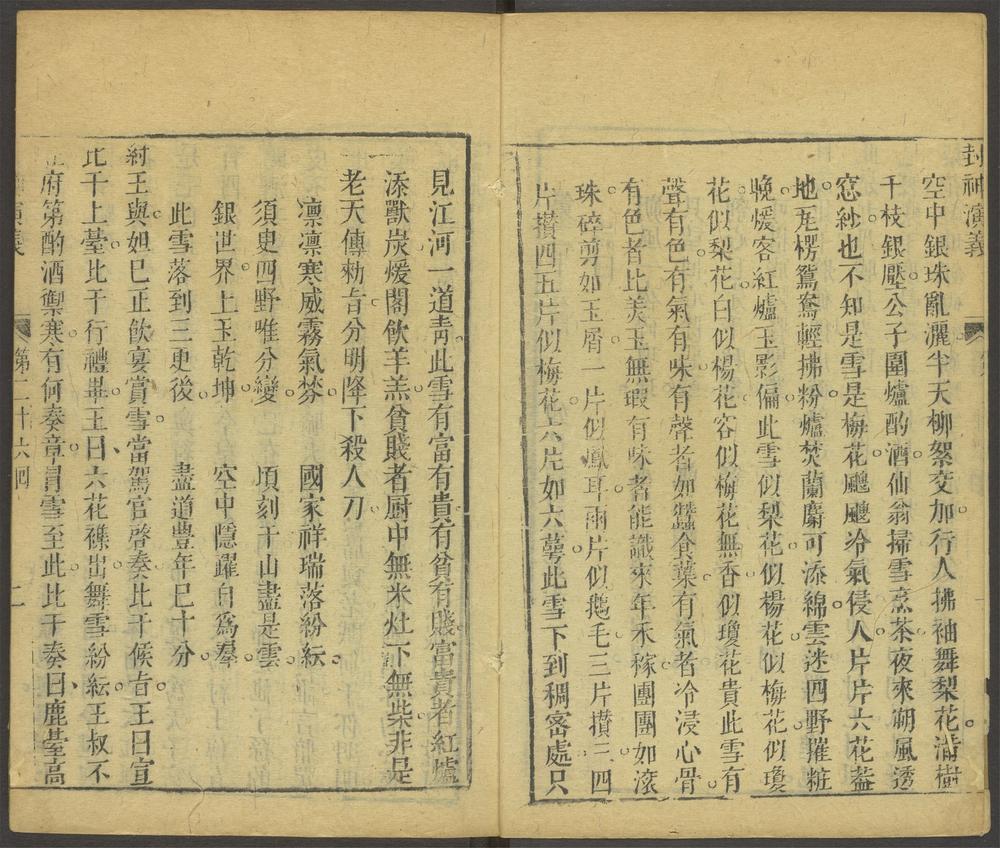 封神演義
空中銀珠亂灑半天柳絮交加行人拂袖舞梨花滿樹
千枝銀壓公子圍爐酌酒仙翁掃雪烹茶夜來朔風透
窓紗也不知是雪是梅花颼颼冷氣侵人片片六花葢
地瓦楞鴛鴦輕拂粉爐焚蘭麝可添綿雲迷四野摧粧
晚煖客紅爐玉影偏此雪似梨花似楊花似梅花似瓊
花似梨花白似楊花容似梅花無香似瓊花貴此雪有
聲有色有氣有味有聲者如蠶食葉有氣者冷浸心骨
有色者比美玉無瑕有味者能識來年禾稼團團如滚
珠碎剪如玉屑一片似鳳耳兩片似鵝毛三片攅三四
片攅四五片似梅花六片如六萼此雪下到稠密處只
見江河一道靑此雪有富有貴有貧有賤富貴者紅爐
添獸炭煖閣飮羊羔貧賤者厨中無米灶下無柴非是
老天傳勅旨分明降下殺人刀
凛凛寒威霧氣棼 國家祥瑞落紛紜
須臾四野唯分變 頃刻千山盡是雲
銀世界上玉乾坤 空中隱躍自爲羣
此雪落到三更後 盡道豐年已十分
紂王與妲己正飮宴賞雪當駕官啓奏比干候旨王曰宣
比干上臺比干行禮畢王曰六花襍出舞雪紛紜王叔不
府第酌酒禦寒有何奏章冒雪至此比干奏曰鹿臺高
演義
第二十六囘
二